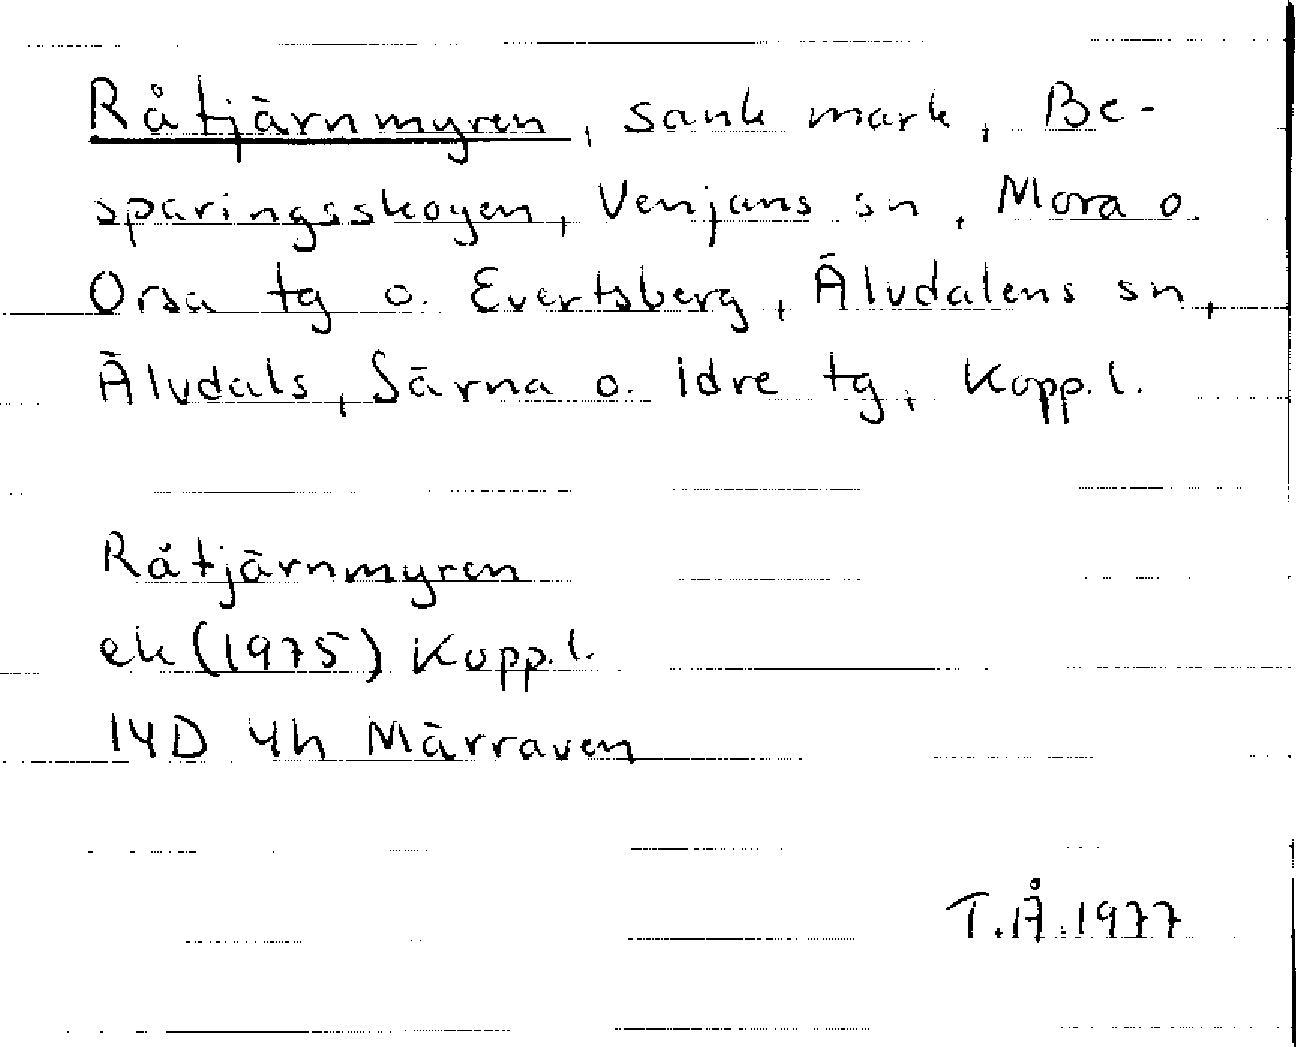 Råtjärnmyren, sank mark, Be-
sparingsskogen, Venjans sn, Mora o.
Orsa tg o. Evertsberg, Älvdalens sn,
Älvdals, Särna o. Idre tg, Kopp.l.
Råtjärnmyren
ek (1975) Kopp.l.
14D 4h Märraven
T.Å.1977